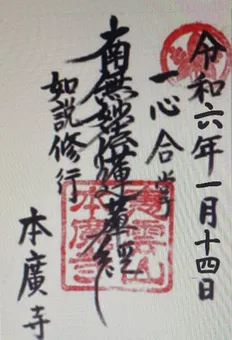 令和六年一月十四日
一心合掌
南無妙法蓮華經
如説修行
本廣寺